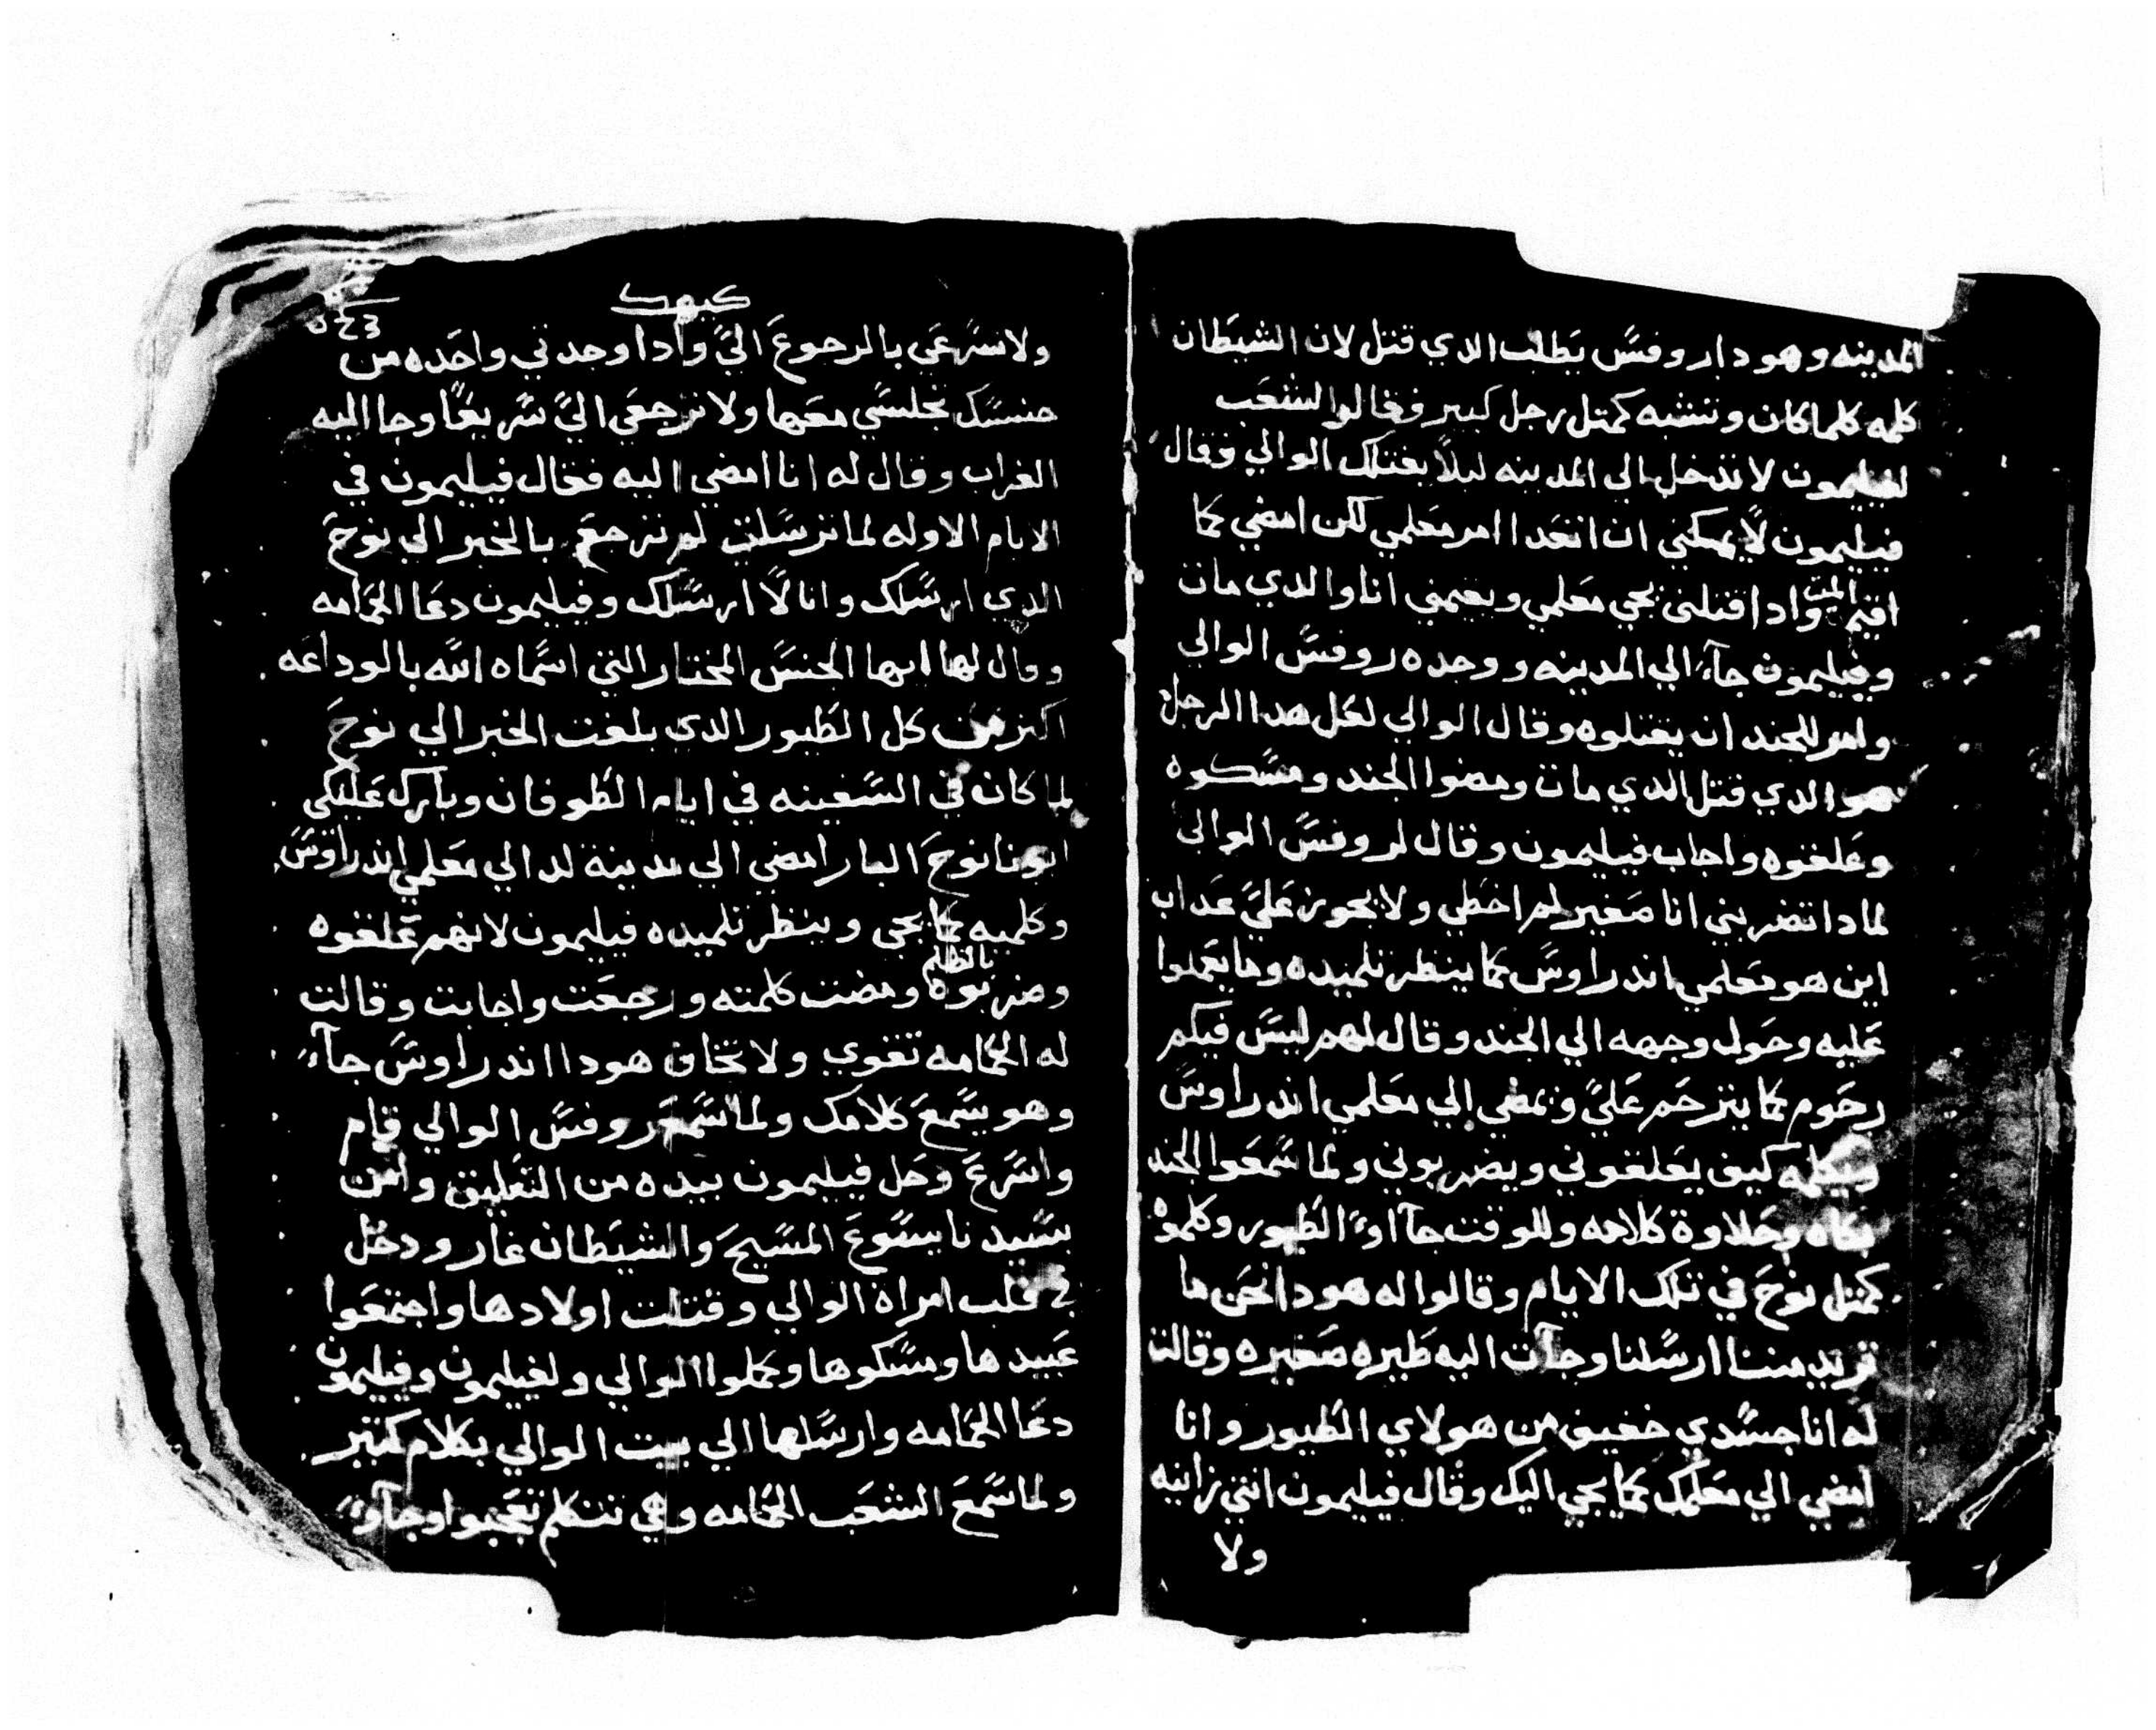 المدينه وهودا روفس يطلب الدي قتل لان الشيطان
كلمه كلما كان وتشبه كمتل رجل كبير فقالوا الشعب
لفيليمون لا تدخل الي المدينه ليلاً يقتلك الوالي فقال
فيليمون لا يمكني ان اتعدا امر معلمي لكن امضي كما
اقيم الميت وادا قتلني يجي معلمي ويقيمني انا والدي مات
وفيليمون جآء الي المدينه ووجده روفس الوالي
وامر للجند ان يقتلوه وقال الوالي لعل هدا الرجل
هو الدي قتل الدي مات ومضوا الجند ومسكوه
وعلقوه واجاب فيليمون وقال لروفس الوالي
لمادا تضربني انا صغير لم اخطي ولا يجوز عليَّ عداب
اين هو معلمي اندراوس كما ينظر تلميده وما يعملوا
عليه وحول وجهه الي الجند وقال لهم ليس فيكم
رحوم كما يترحم عليَّ ويمضي الي معلمي اندراوس
ويكلمه كيف يعلقوني ويضربوني ولما سمعوا الجند
بكاه وحلاوة كلامه وللوقت جآاوا الطيور وكلموه
كمتل نوح في تلك الايام وقالوا له هودا نحن ما
تريد مننا ارسلنا وجآت اليه طيره صغيره وقالت
له انا جسدي خفيف من هولاي الطيور وانا
امضي الي معلمك كما يجي اليك وقال فيليمون انتي زانيه
ولا
كيهك
ولا تسرعي بالرجوع اليَّ وادا وجدتي واحده من
جنسك تجلسي معها ولا ترجعي اليَّ سريعًا وجا اليه
الغراب وقال له انا امضي اليه فقال فيليمون في
الايام الاوله لما ترسلت لم ترجع بالخبر الي نوح
الدي ارسلك وانا لا ارسلك وفيليمون دعا الحمامه
وقال لها ايها الجنس المختار التي اسماه الله بالوداعه
اكتر من كل الطيور الدي بلغت الخبر الي نوح
لما كان في السفينه في ايام الطوفان وبارك عليكي
ابونا نوح البار امضي الي مدينة لد الي معلمي اندراوس
وكلميه كما يجي وينظر تلميده فيليمون لانهم علقوه
وضربوه بالظلم ومضت كلمته ورجعت واجابت وقالت
له الحمامه تقوي ولا تخاف هودا اندراوس جآء
وهو يسمع كلامك ولما سمع روفس الوالي قام
واسرع وحل فيليمون بيده من التعليق وامن
بسيدنا يسوع المسيح والشيطان غار ودخل
في قلب امراة الوالي وقتلت اولادها واجتمعوا
عبيدها ومسكوها وعلموا الوالي ولفيليمون وفيليمون
دعا الحمامه وارسلها الي بيت الوالي بكلام كتير
ولما سمع الشعب الحمامه وهي تتكلم تعجبوا وجآوا